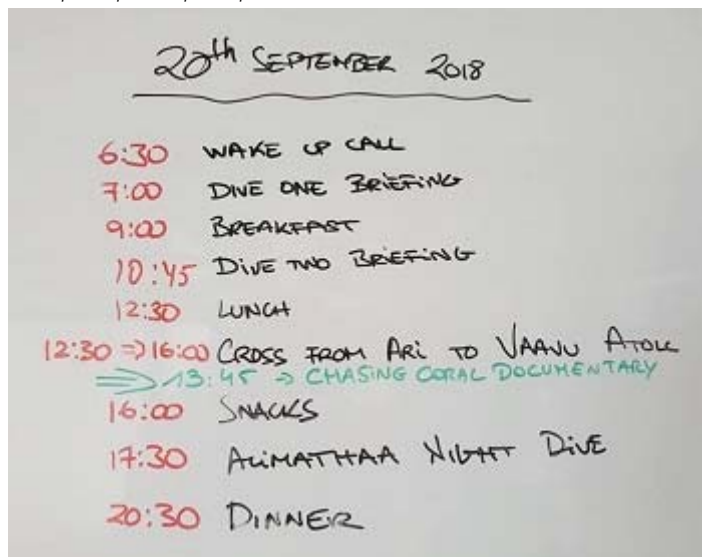 20th SEPTEMBER 2018
6:30 WAKE UP CALL
7:00 DIVE ONE BRIEFING
9:00 BREAKFAST
10:45 DIVE TWO BRIEFING
12:30 LUNCH
12:30 => 16:00 CROSS FROM ARI TO VAAVU ATOLL
=> 13:45 → CHASING CORAL DOCUMENTARY
16:00 SNACKS
17:30 ALIMATHAA NIGHT DIVE
20:30 DINNER